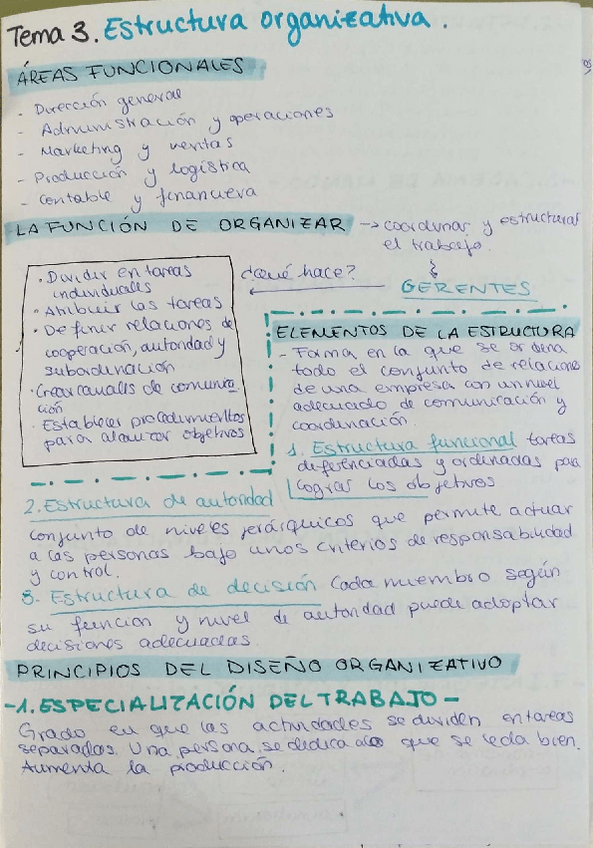 Tema 3. Estructura organizativa.
ÁREAS FUNCIONALES
- Dirección general
- Administración y operaciones
- Marketing y ventas
- Producción y logística
- Contable y financiera
LA FUNCIÓN DE ORGANIZAR → coordinar y estructurar
el trabajo.
¿Qué hace?
GERENTES
· Dividir en tareas
individuales
· Atribuir las tareas
· Definir relaciones de
cooperación, autoridad y
subordinación
· Crear canales de comunica-
ción
· Establecer procedimientos
para alcanzar objetivos
ELEMENTOS DE LA ESTRUCTURA
- Forma en la que se ordena
todo el conjunto de relaciones
de una empresa con un nivel
adecuado de comunicación y
coordinación.
1. Estructura funcional tareas
diferenciadas y ordenadas para
lograr los objetivos
2. Estructura de autoridad
conjunto de niveles jerárquicos que permite actuar
a las personas bajo unos criterios de responsabilidad
y control.
3. Estructura de decisión Cada miembro según
su función y nivel de autoridad puede adoptar
decisiones adecuadas.
PRINCIPIOS DEL DISEÑO ORGANIZATIVO
-1. ESPECIALIZACIÓN DEL TRABAJO-
Grado en que las actividades se dividen en tareas
separadas. Una persona se dedica a lo que se le da bien.
Aumenta la producción.